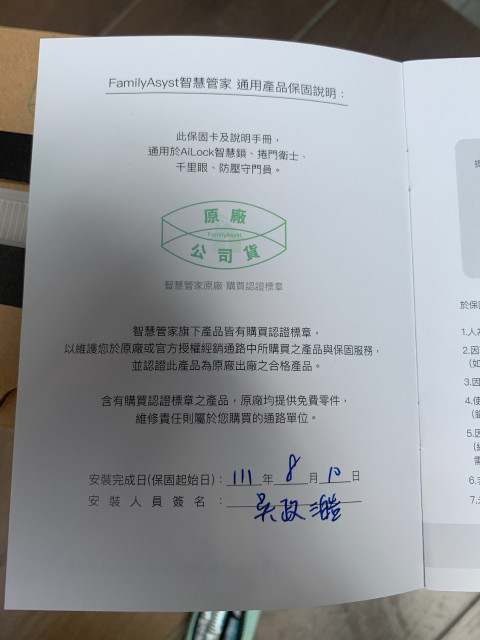 FamilyAsyst智慧管家 通用產品保固說明：
此保固卡及說明手冊，
通用於AiLock智慧鎖、捲門衛士、
千里眼、防壓守門員。
原廠
FamilyAsyst
公司貨
智慧管家原廠 購買認證標章
智慧管家旗下產品皆有購買認證標章，
以維護您於原廠或官方授權經銷通路中所購買之產品與保固服務，
並認證此產品為原廠出廠之合格產品。
含有購買認證標章之產品，原廠均提供免費零件，
維修責任則屬於您購買的通路單位。
安裝完成日(保固起始日)：111年8月10日
安裝人員簽名：吳政
於保固
1.人為
2.因
(如
3.因
4.使
5.因
6.
7.